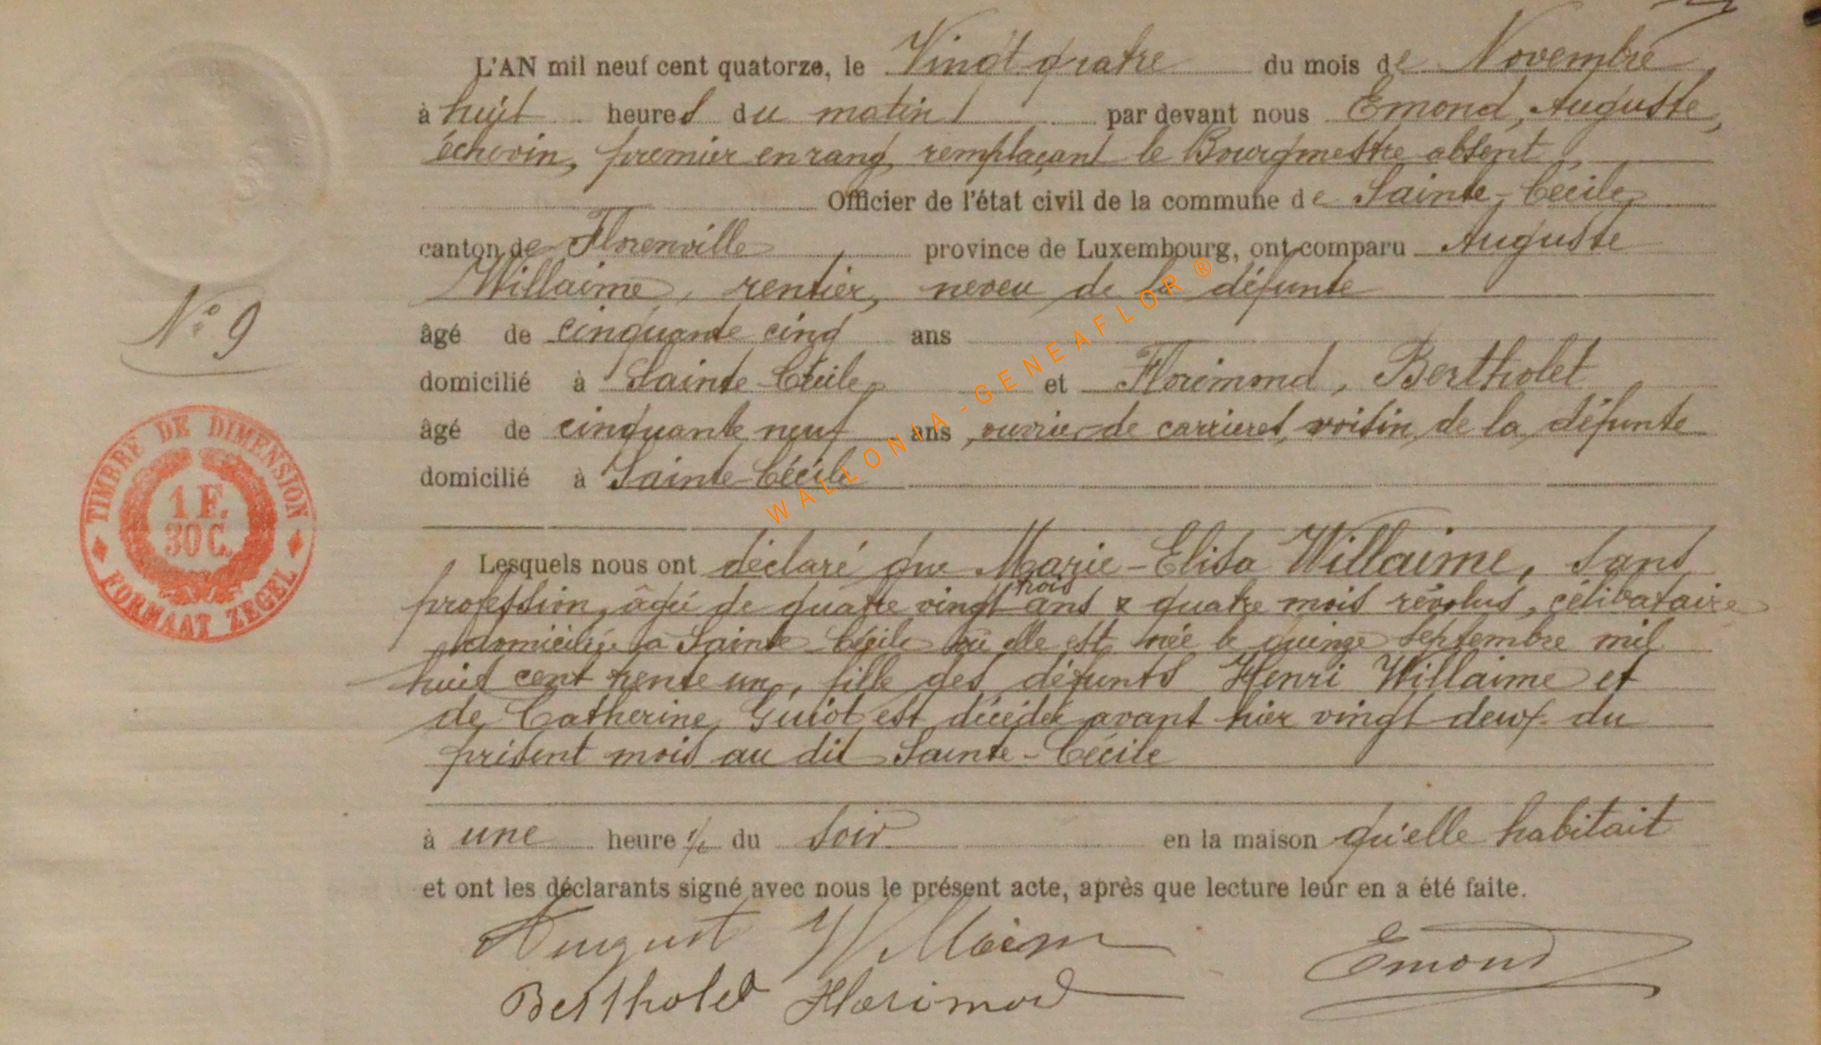 L'AN mil neuf cent quatorze, le Vingt quatre du mois de Novembre
à huit heures du matin par devant nous Emond, Auguste,
échevin, premier en rang, remplaçant le Bourgmestre absent
Officier de l'état civil de la commune de Sainte-Cécile
canton de Florenville province de Luxembourg, ont comparu Auguste
Willaime, rentier, neveu de la défunte
N° 9
âgé de cinquante cinq ans
domicilié à Sainte-Cécile et Florimond, Bertholet
âgé de cinquante neuf ans, ouvrier de carrieres, voisin, de la défunte
domicilié à Sainte-Cécile
WALLONIA-GENEAFLOR®
TIMBRE DE DIMENSION
1 F.
30 C.
FORMAAT ZEGEL
Lesquels nous ont déclaré que Marie-Elisa Willaime, sans
trois
profession, âgée de quatre vingt ans & quatre mois révolus, célibataire
domiciliée à Sainte Cécile où elle est née le quinze septembre mil
huit cent trente un, fille des défunts Henri Willaime et
de Catherine Guiot est décédée avant hier vingt deux du
présent mois au dit Sainte-Cécile
à une heure ½ du soir en la maison qu'elle habitait
et ont les déclarants signé avec nous le présent acte, après que lecture leur en a été faite.
August Willaim
Emond
Bertholet Florimod